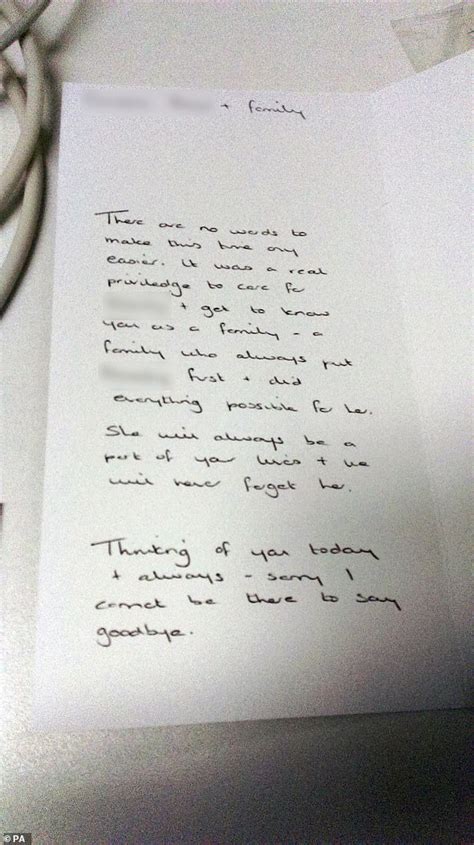 + family
There are no words to
make this time any
easier. It was a real
priviledge to care for
+ get to know
you as a family - a
family who always put
first + did
everything possible for her.
She will always be a
part of your lives + we
will never forget her.
Thinking of you today
+ always - sorry I
cannot be there to say
goodbye.
© PA